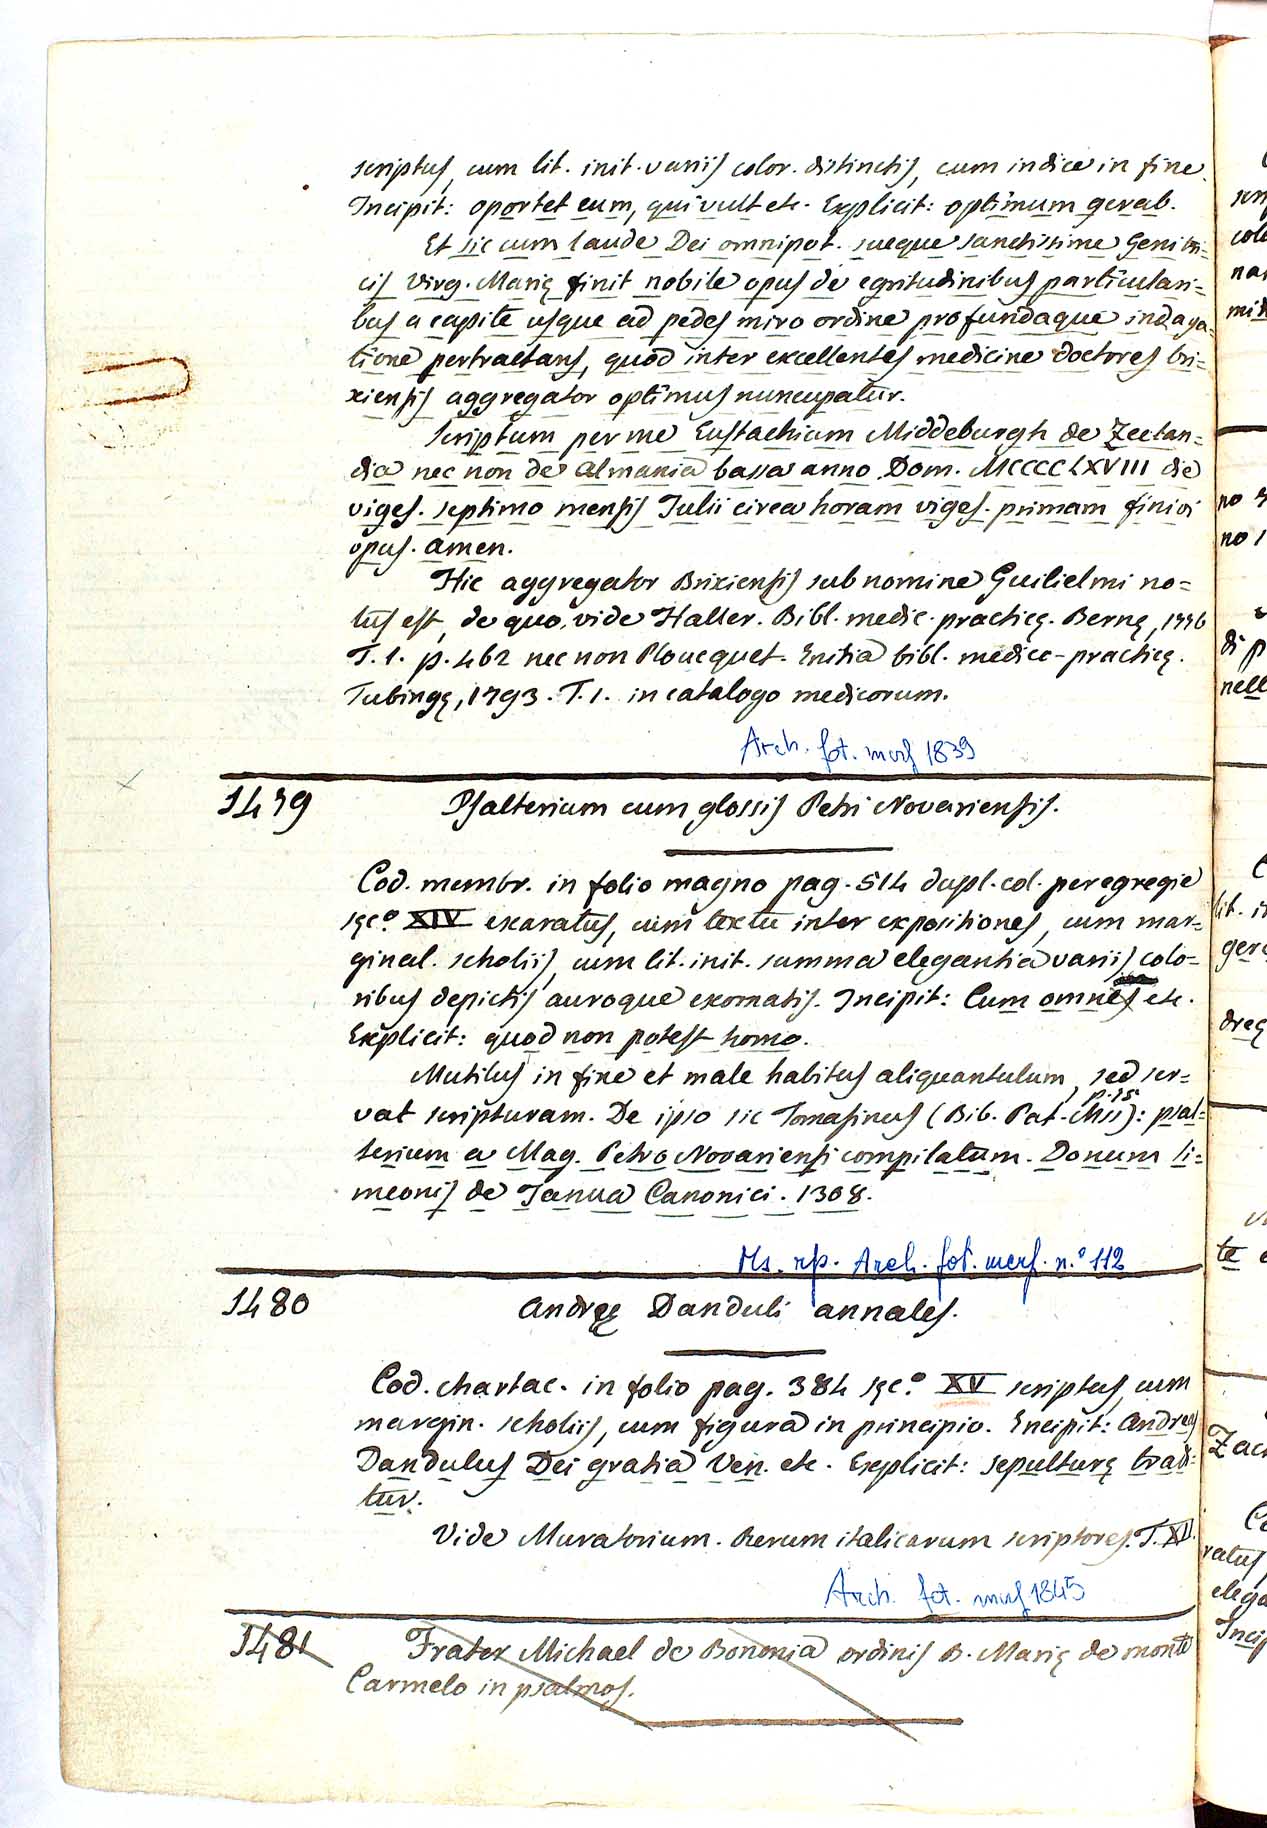 scriptus, cum lit. init. variis color. distinctis, cum indice in fine.
Incipit: oportet eum, qui vult etc. Explicit: optimum gerab.
Et sic cum laude Dei omnipot. sueque sanctissime Genitri=
cis Virg. Marię finit nobile opus de egritudinibus particulari=
bus a capite usque ad pedes miro ordine profundaque indaga=
tione pertractans, quod inter excellentes medicine doctores bri=
xiensis aggregator optimus nuncupatur.
Scriptum per me Eustachium Middeburgh de Zeelan=
dia nec non de Almania bassa anno Dom. MCCCCLXVIII die
viges. septimo mensis Julii circa horam viges. primam finivi
opus. Amen.
Hic aggregator Brixiensis sub nomine Guilielmi no=
tus est, de quo vide Haller. Bibl. medic. practicę. Bernę, 1776
T. 1. p. 462 nec non Ploucquet. Initia bibl. medico-practicę.
Tubingę, 1793. T. 1. in catalogo medicorum.
Arch. fot. marc 1839
1479 Psalterium cum glossis Petri Novariensis.
Cod. membr. in folio magno pag. 514 dupl. col. peregregie
sęc.o XIV exaratus, cum textu inter expositiones, cum mar=
ginal. scholiis, cum lit. init. summa elegantia variis colo=
ribus depictis auroque exornatis. Incipit: Cum omnes etc.
Explicit: quod non potest homo.
Mutilus in fine et male habitus aliquantulum, sed ser=
vat scripturam. De ipso sic Tomasinus (Bib. Pat. Mss p. 15): psal=
terium a Mag. Petro Novariensi compilatum. Donum Si=
meonis de Janua Canonici. 1308.
Ms. rip. Arch. fot. marc. n.o 112
1480 Andreę Danduli annales.
Cod. chartac. in folio pag. 384 sęc.o XV scriptus, cum
margin. scholiis, cum figura in principio. Incipit: Andreas
Dandulus Dei gratia Ven. etc. Explicit: sepulturę tradi=
tur.
Vide Muratorium. Rerum italicarum scriptores. T. XII.
Arch. fot. marc 1845
1481 Frater Michael de Bononia ordinis B. Marię de monte
Carmelo in psalmos.